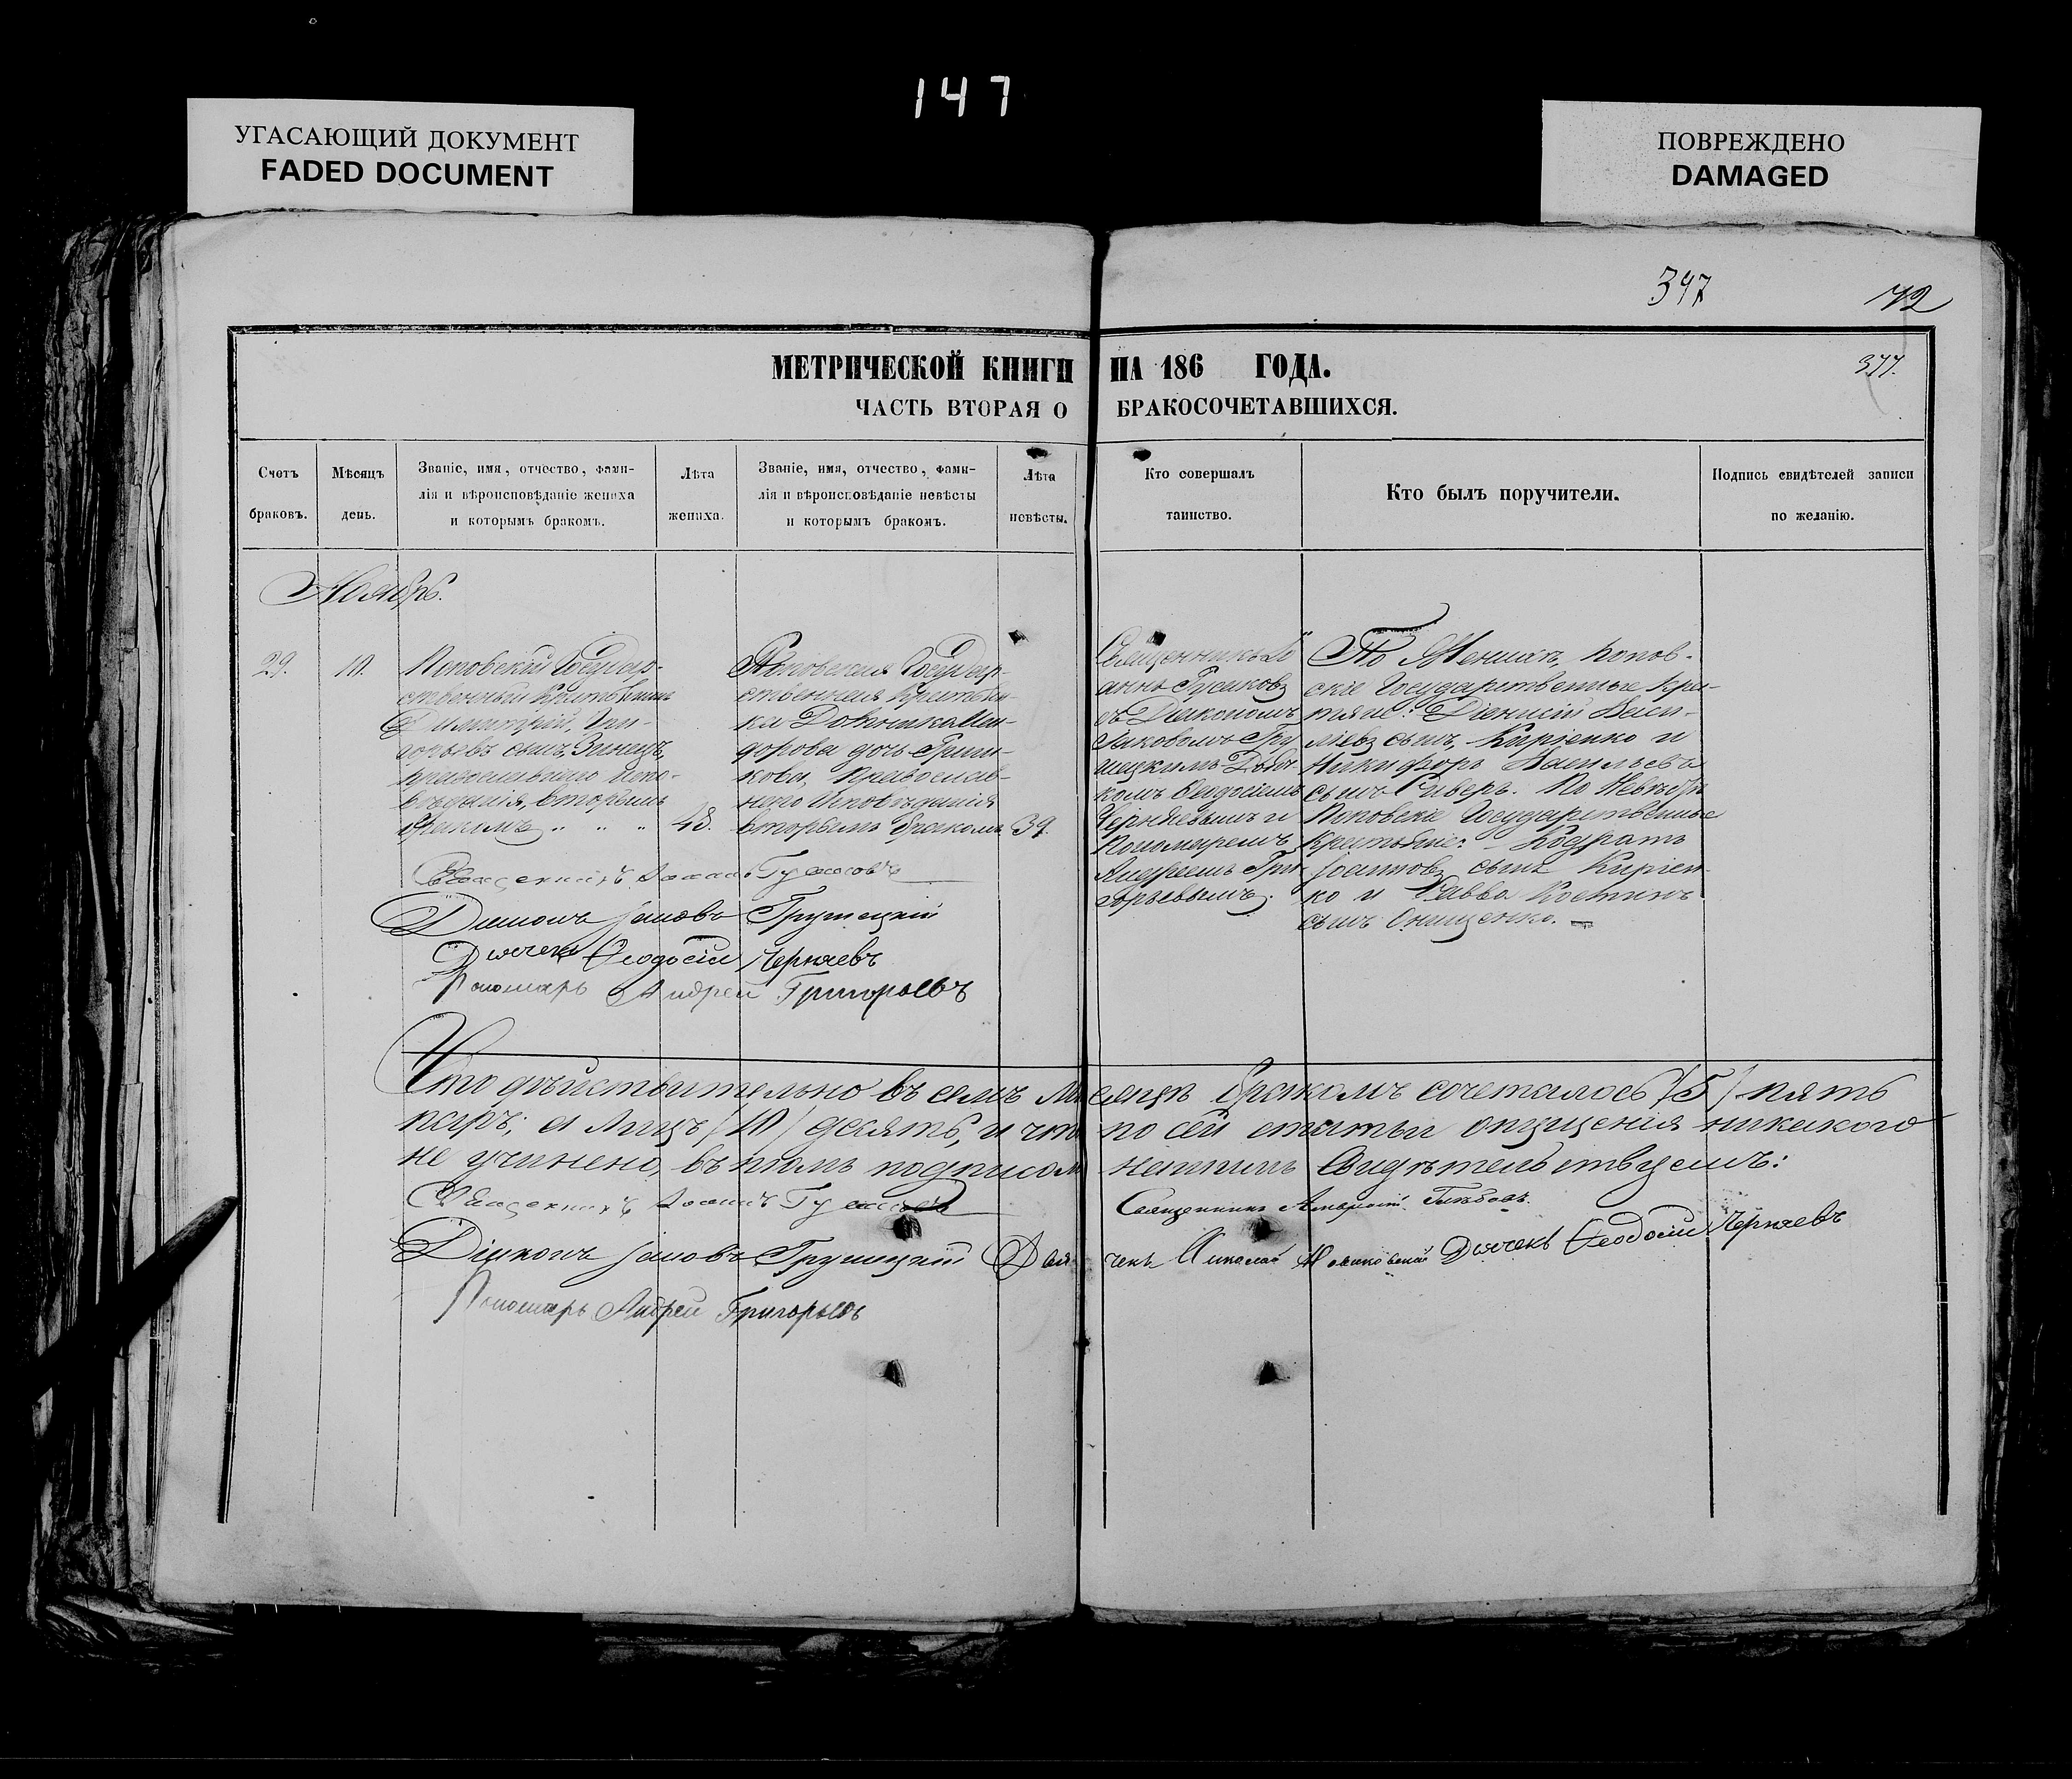 147
УГАСАЮЩИЙ ДОКУМЕНТ
FADED DOCUMENT
ПОВРЕЖДЕНО
DAMAGED
347
72
377.
МЕТРИЧЕСКОЙ КНИГИ НА 186 ГОДА.
ЧАСТЬ ВТОРАЯ О БРАКОСОЧЕТАВШИХСЯ.
Счетъ
браковъ.
Мѣсяцъ
день.
Званіе, имя, отчество, фами-
лія и вѣроисповѣданіе жениха
и которымъ бракомъ.
Лѣта
жениха.
Званіе, имя, отчество, фами-
лія и вѣроисповѣданіе невѣсты
и которымъ бракомъ.
Лѣта
невѣсты.
Кто совершалъ
таинство.
Кто былъ поручители.
Подпись свидѣтелей записи
по желанію.
Ноябрь.
29.
10.
Поповскій Государ-
ственный Крестьянинъ
Димитрій
сынъ Зинецъ,
православнаго испо-
вѣданія, вторымъ
бракомъ
48.
Поповская Государ-
ственная Крестьян-
ка
дорова дочь Грин-
кова, Православ-
наго Исповѣданія
вторымъ бракомъ
39.
Священникъ Іо
аннъ Гусаковъ
съ Діакономъ
Іаковомъ Гру
шецкимъ Дьяч
комъ Феодосіемъ
Черняевымъ и
Пономаремъ
Андреемъ Гри-
горьевымъ.
По Женихѣ, Попов-
скіе Государственные Кре-
стяне: Діонисій Васи-
ліевъ сынъ, Киріенко и
Никифоръ Васильевъ
сынъ Сиверъ. По Невѣстѣ
Поповскіе Государственные
Крестьяне: Кодратъ
Іоанновъ сынъ Киріен-
ко и Савва Костинъ
сынъ Онищенко.
Священникъ Іоаннъ Гусаковъ
Діаконъ Іаковъ Грушецкій
Дьячекъ Феодосій Черняевъ
Пономарь Андрей Григорьевъ
Что дѣйствительно въ семъ мѣсяцѣ бракомъ сочеталось (5) пять
паръ; а лицъ (10) десять, и что по сей статьи опущенія никакого
не учинено, въ томъ подписомъ нашимъ Свидѣтельствуемъ:
Священникъ Іоаннъ Гусаковъ
Священникъ Глѣбовъ.
Діаконъ Іаковъ Грушецкій Дьячекъ Николай Дьячекъ Феодосій Черняевъ
Пономарь Андрей Григорьевъ